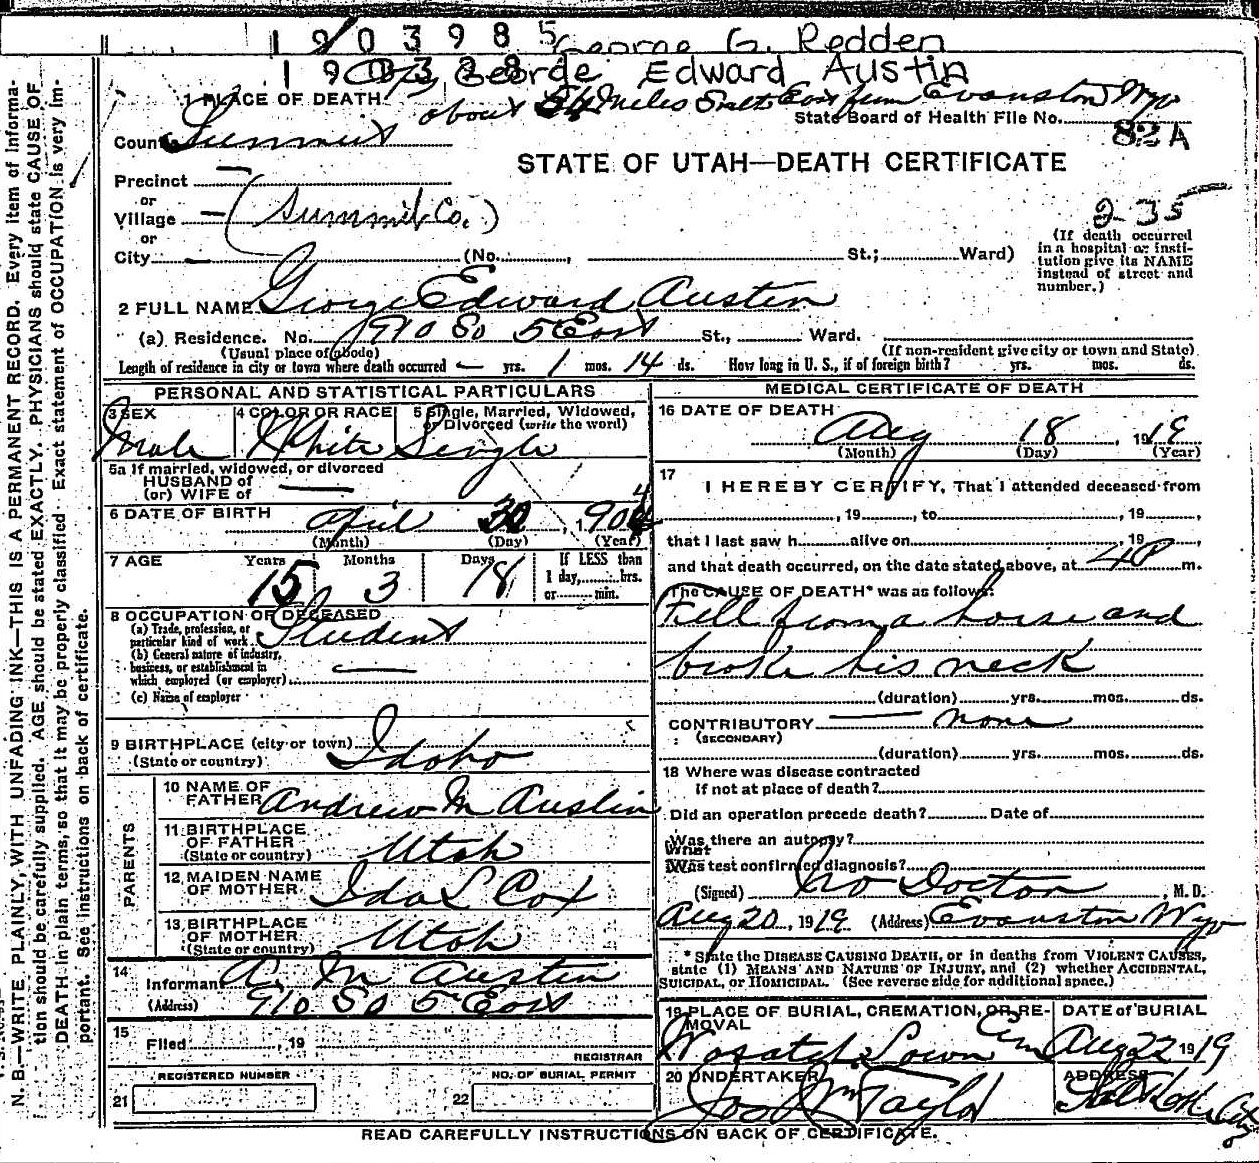 1903985
George G. Redden
George Edward Austin
1 PLACE OF DEATH
about 54 Miles East from Evanston Wyo
State Board of Health File No.
82 A
County Summit
STATE OF UTAH—DEATH CERTIFICATE
Precinct —
or
Village — (Summit Co.)
235
or
City — (No. , St.; Ward)
(If death occurred in a hospital or institution give its NAME instead of street and number.)
2 FULL NAME George Edward Austin
(a) Residence. No. 910 So 5 East St., Ward.
(Usual place of abode)
(If non-resident give city or town and State)
Length of residence in city or town where death occurred — yrs. 1 mos. 14 ds. How long in U. S., if of foreign birth? yrs. mos. ds.
PERSONAL AND STATISTICAL PARTICULARS
3 SEX
Male
4 COLOR OR RACE
White
5 Single, Married, Widowed, or Divorced (write the word)
Single
5a If married, widowed, or divorced
HUSBAND of
(or) WIFE of —
6 DATE OF BIRTH
April 30, 1904
(Month) (Day) (Year)
7 AGE
Years Months Days
15 3 18
If LESS than
1 day, hrs.
or min.
8 OCCUPATION OF DECEASED
(a) Trade, profession, or
particular kind of work Student
(b) General nature of industry,
business, or establishment in
which employed (or employer) —
(c) Name of employer
9 BIRTHPLACE (city or town) Idaho
(State or country)
PARENTS
10 NAME OF
FATHER Andrew M Austin
11 BIRTHPLACE
OF FATHER Utah
(State or country)
12 MAIDEN NAME
OF MOTHER Ida L Cox
13 BIRTHPLACE
OF MOTHER Utah
(State or country)
14
Informant A. M Austin
(Address) 910 So 5 East
15
Filed , 19
REGISTRAR
REGISTERED NUMBER
21
NO. OF BURIAL PERMIT
22
MEDICAL CERTIFICATE OF DEATH
16 DATE OF DEATH
Aug 18, 1919
(Month) (Day) (Year)
17
I HEREBY CERTIFY, That I attended deceased from
, 19 , to , 19 ,
that I last saw h alive on , 19 ,
and that death occurred, on the date stated above, at 4 P m.
The CAUSE OF DEATH* was as follows:
Fell from a horse and
broke his neck
(duration) yrs. mos. ds.
CONTRIBUTORY — none
(SECONDARY)
(duration) yrs. mos. ds.
18 Where was disease contracted
if not at place of death?
Did an operation precede death? Date of
Was there an autopsy?
What test confirmed diagnosis?
(Signed) No Doctor , M. D.
Aug 20, 1919 (Address) Evanston Wyo
* State the DISEASE CAUSING DEATH, or in deaths from VIOLENT CAUSES,
state (1) MEANS AND NATURE OF INJURY, and (2) whether ACCIDENTAL,
SUICIDAL, or HOMICIDAL. (See reverse side for additional space.)
19 PLACE OF BURIAL, CREMATION, OR RE-
MOVAL
Wasatch Lawn Cem
DATE of BURIAL
Aug 22 1919
20 UNDERTAKER
Jos Wm Taylor
ADDRESS
Salt Lake City
READ CAREFULLY INSTRUCTIONS ON BACK OF CERTIFICATE.
N. B.—WRITE PLAINLY, WITH UNFADING INK—THIS IS A PERMANENT RECORD. Every item of informa-
tion should be carefully supplied. AGE should be stated EXACTLY. PHYSICIANS should state CAUSE OF
DEATH in plain terms, so that it may be properly classified. Exact statement of OCCUPATION is very im-
portant. See instructions on back of certificate.